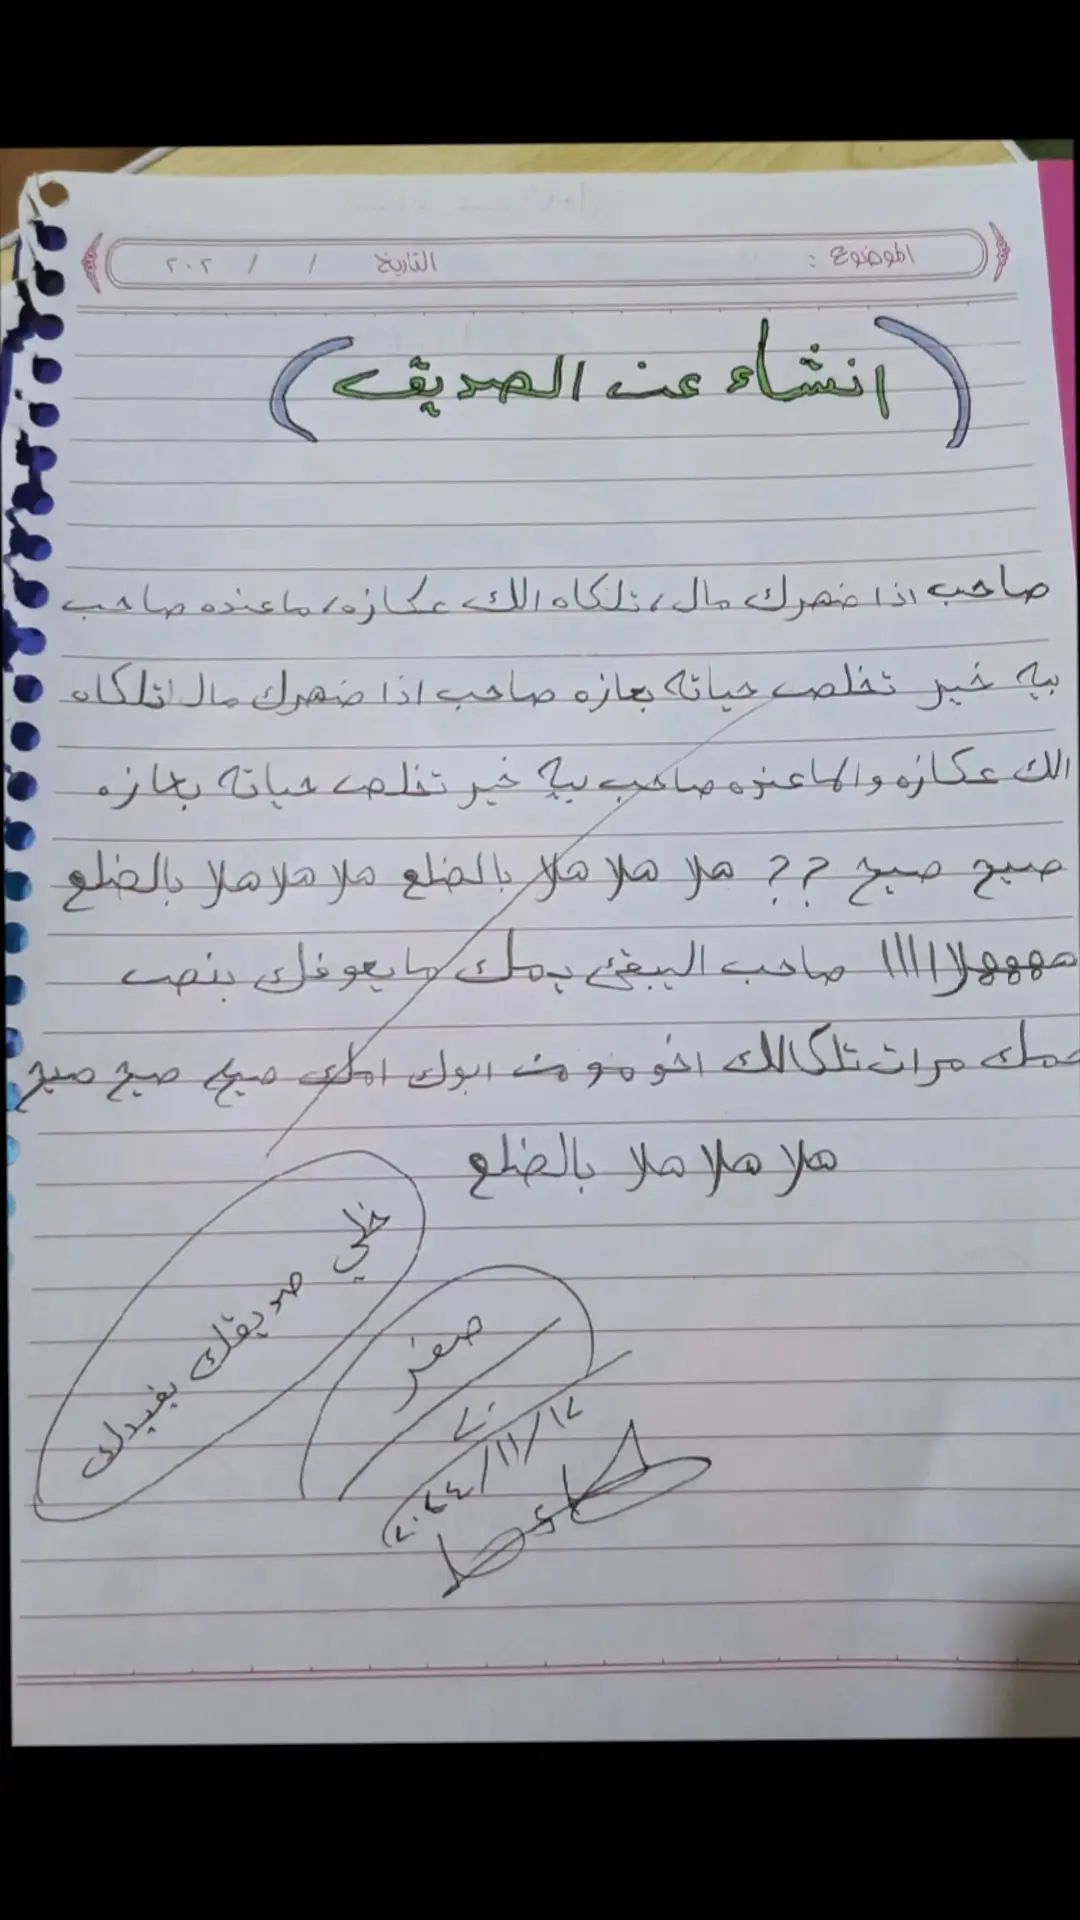 الموضوع :
التاريخ / / ٢٠٢
(انشاء عن الصديق)
صاحب اذا ضهرك مال، تلكاه الك عكازه، ماعنده صاحب
بيه خير تخلص حياته بعازه صاحب اذا ضهرك مال تلكاه
الك عكازه والماعنده صاحب بيه خير تخلص حياته بعازه
صيح صيح ?? هلا هلا هلا بالضلع هلا هلا هلا بالضلع
هههههلااااا صاحب اليبقئ يمك مايعوفك بنص
همك مرات تلكالك اخو مو من ابوك امك صيح صيح صيح
هلا هلا هلا بالضلع
خلي صديقك يفيدك
صفر
٢٠
٢٠٢٤/١١/١٢